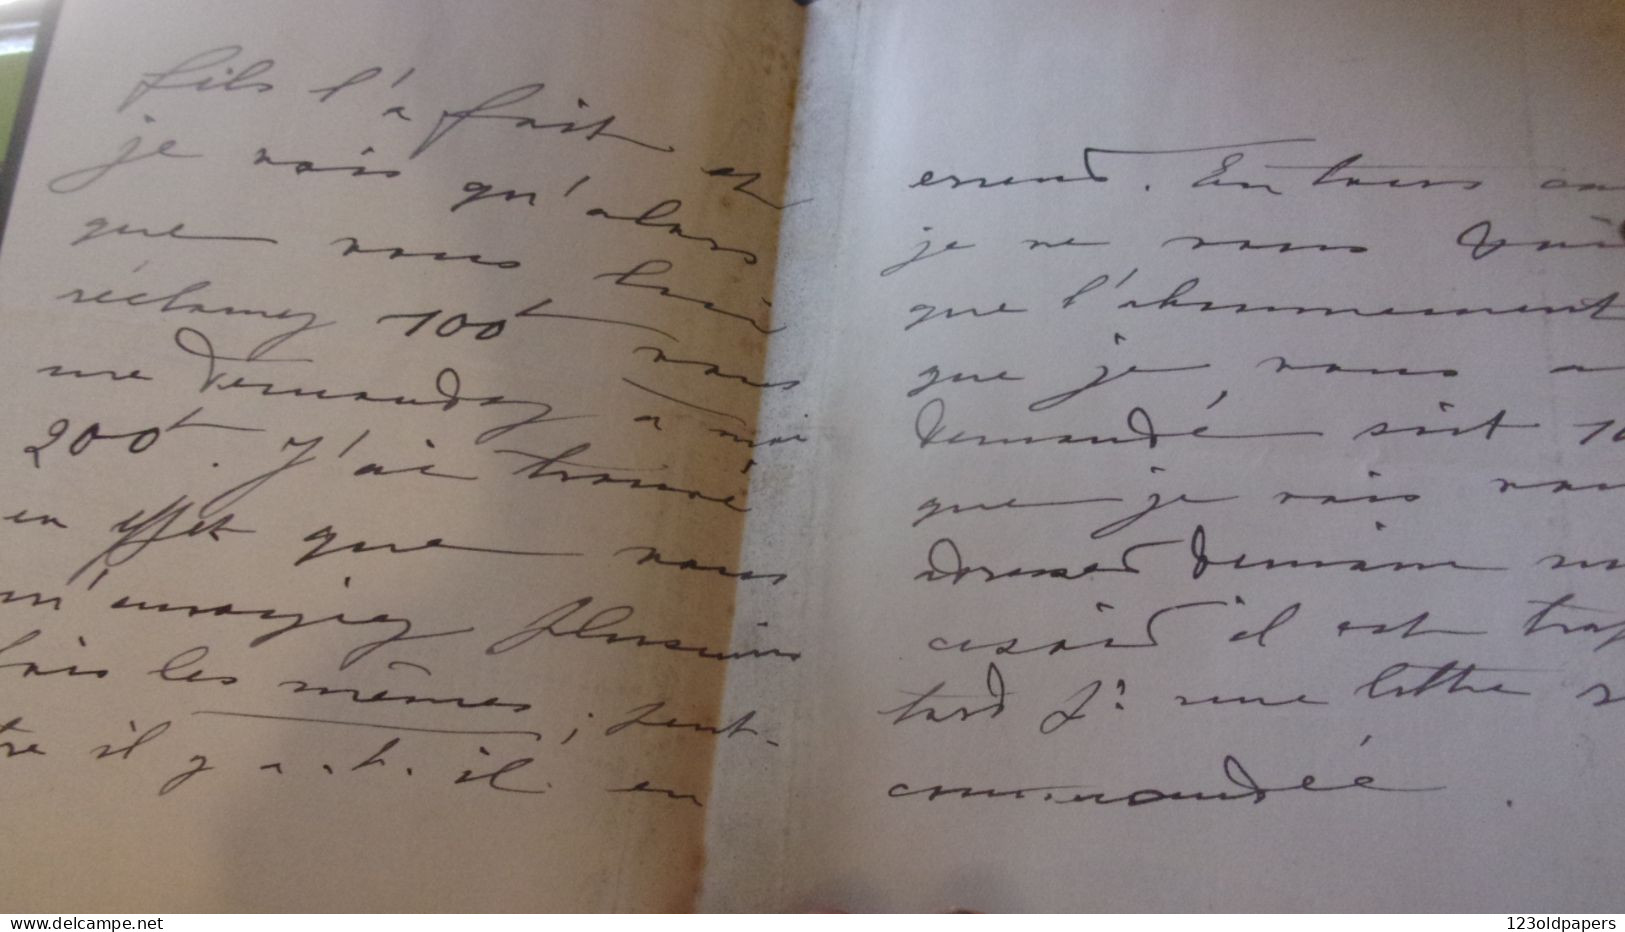 fils l'a fait et
je vois qu'alors
que vous lui
réclamez 100f vous
me demandez à moi
200f. J'ai trouvé
en effet que vous
m'envoyiez plusieurs
fois les mêmes ; peut-
tre il y a.t.il. eu
erreur. En tous cas
je ne vous dois
que l'abonnement
que je vous a
demandé, soit 10
que je vais vous
adresser demain
ce soir il est trop
tard pr une lettre
commandée.
www.delcampe.net
123oldpapers